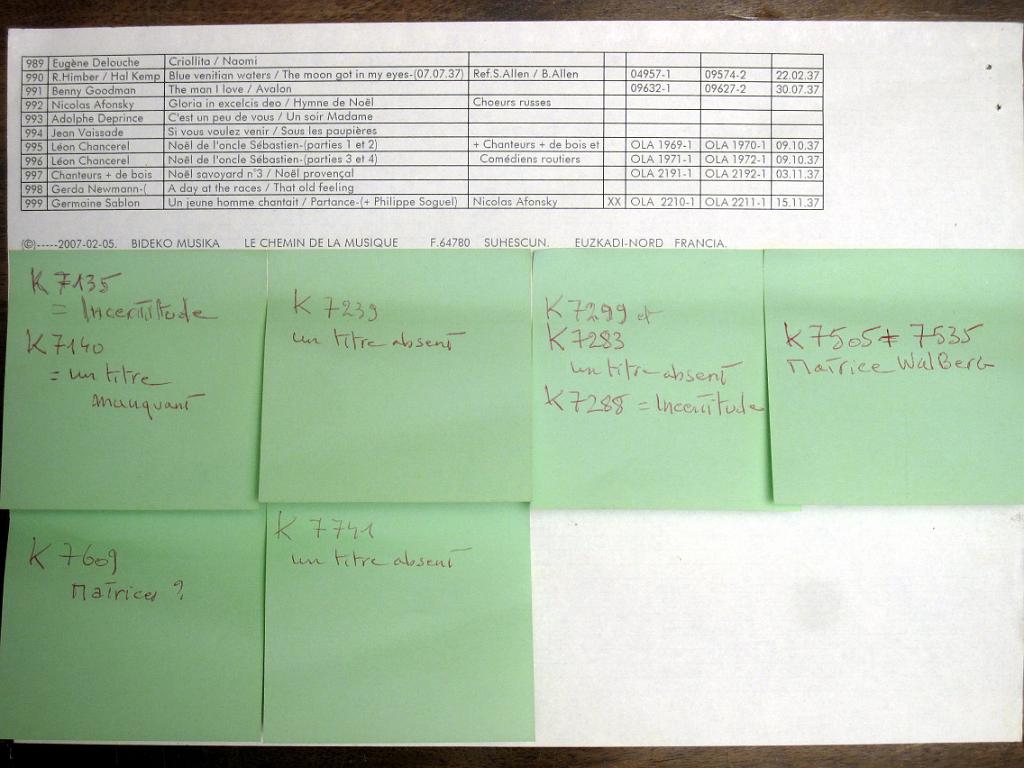 989 Eugène Delouche Criollita / Naomi
990 R.Himber / Hal Kemp Blue venitian waters / The moon got in my eyes-(07.07.37) Ref.S.Allen / B.Allen 04957-1 09574-2 22.02.37
991 Benny Goodman The man I love / Avalon 09632-1 09627-2 30.07.37
992 Nicolas Afonsky Gloria in excelcis deo / Hymne de Noël Choeurs russes
993 Adolphe Deprince C'est un peu de vous / Un soir Madame
994 Jean Vaissade Si vous voulez venir / Sous les paupières
995 Léon Chancerel Noël de l'oncle Sébastien-(parties 1 et 2) + Chanteurs + de bois et OLA 1969-1 OLA 1970-1 09.10.37
996 Léon Chancerel Noël de l'oncle Sébastien-(parties 3 et 4) Comédiens routiers OLA 1971-1 OLA 1972-1 09.10.37
997 Chanteurs + de bois Noël savoyard n°3 / Noël provençal OLA 2191-1 OLA 2192-1 03.11.37
998 Gerda Newmann-( A day at the races / That old feeling
999 Germaine Sablon Un jeune homme chantait / Partance-(+ Philippe Soguel) Nicolas Afonsky XX OLA 2210-1 OLA 2211-1 15.11.37
(©)-----2007-02-05. BIDEKO MUSIKA LE CHEMIN DE LA MUSIQUE F.64780 SUHESCUN. EUZKADI-NORD FRANCIA.
K 7135
= Incertitude
K 7140
= un titre
manquant
K 7239
un titre absent
K 7299 et
K 7283
un titre absent
K 7288 = Incertitude
K 7505 ≠ 7535
Matrice WalBerg
K 7609
Matrices ?
K 7741
un titre absent